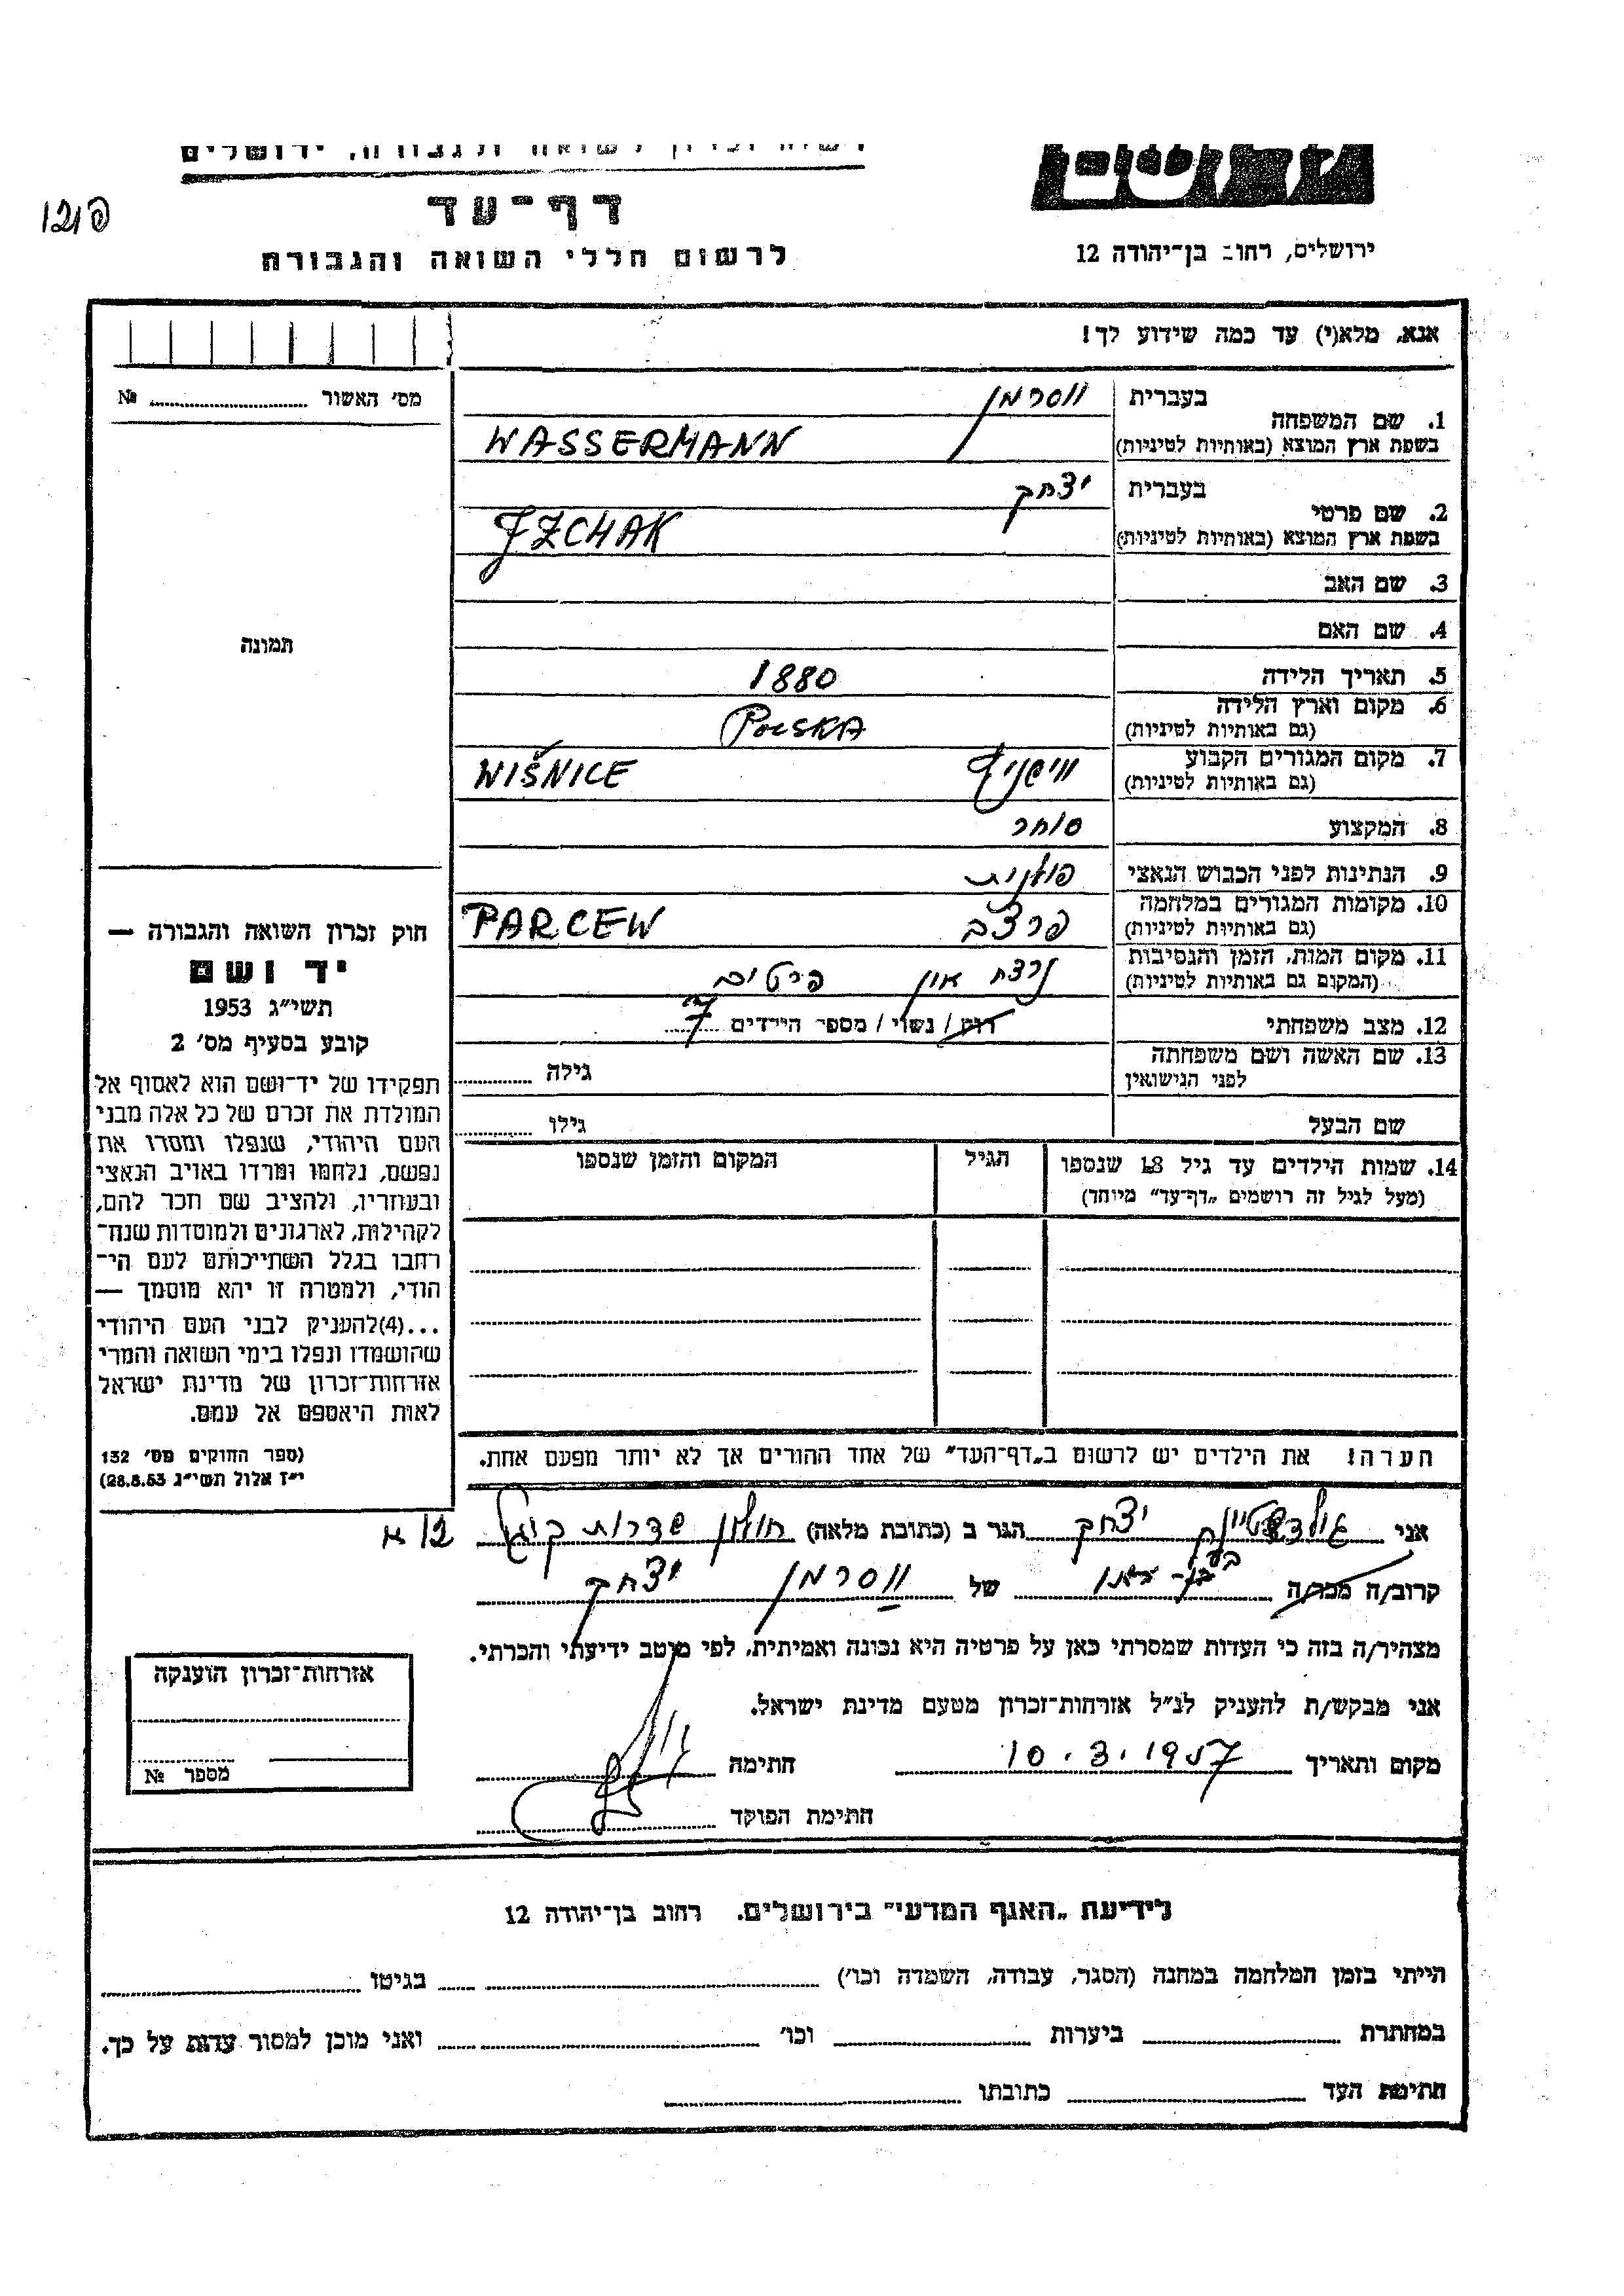 דף־עד
לרשום חללי השואה והגבורה
ירושלים, רחוב בן־יהודה 12
אנא, מלא(י) עד כמה שידוע לך!
מס' האשור № ....................
1. שם המשפחה בעברית ווסרמן
בשפת ארץ המוצא (באותיות לטיניות) WASSERMANN
2. שם פרטי בעברית יצחק
בשפת ארץ המוצא (באותיות לטיניות) JZCHAK
3. שם האב
4. שם האם
תמונה
5. תאריך הלידה 1880
6. מקום וארץ הלידה
(גם באותיות לטיניות) POLSKA
7. מקום המגורים הקבוע
(גם באותיות לטיניות) WIŠNICE
8. המקצוע סוחר
9. הנתינות לפני הכבוש הנאצי פולנית
10. מקומות המגורים במלחמה
(גם באותיות לטיניות) פרצב PARCEW
11. מקום המות, הזמן והנסיבות
(המקום גם באותיות לטיניות) נרצח אין פרטים
12. מצב משפחתי רווק / נשוי / מספר הילדים 7
13. שם האשה ושם משפחתה
לפני הנישואין גילה
שם הבעל גילו
14. שמות הילדים עד גיל 18 שנספו הגיל המקום והזמן שנספו
(מעל לגיל זה רושמים „דף־עד" מיוחד)
הערה! את הילדים יש לרשום ב„דף־העד" של אחד ההורים אך לא יותר מפעם אחת.
חוק זכרון השואה והגבורה —
יד ושם
תשי"ג 1953
קובע בסעיף מס' 2
תפקידו של יד־ושם הוא לאסוף אל
המולדת את זכרם של כל אלה מבני
העם היהודי, שנפלו ומסרו את
נפשם, נלחמו ומרדו באויב הנאצי
ובעוזריו, ולהציב שם וזכר להם,
לקהילות, לארגונים ולמוסדות שנח־
רבו בגלל השתייכותם לעם הי־
הודי, ולמטרה זו יהא מוסמך —
...(4)להעניק לבני העם היהודי
שהושמדו ונפלו בימי השואה והמרי
אזרחות־זכרון של מדינת ישראל
לאות היאספם אל עמם.
(ספר החוקים מס' 132
י"ז אלול תשי"ג 28.8.53)
אני יצחק הגר ב (כתובת מלאה) חולון שדרות
קרוב/ה מכר/ה של ווסרמן יצחק
מצהיר/ה בזה כי העדות שמסרתי כאן על פרטיה היא נכונה ואמיתית, לפי מיטב ידיעתי והכרתי.
אני מבקש/ת להעניק לנ"ל אזרחות־זכרון מטעם מדינת ישראל.
מקום ותאריך 10.3.1957 חתימה
חתימת הפוקד
אזרחות־זכרון הוענקה
מספר №
לידיעת „האגף המדעי" בירושלים. רחוב בן־יהודה 12
הייתי בזמן המלחמה במחנה (הסגר, עבודה, השמדה וכו') בגיטו
במחתרת ביערות וכו' ואני מוכן למסור עדות על כך.
חתימת העד כתובתו